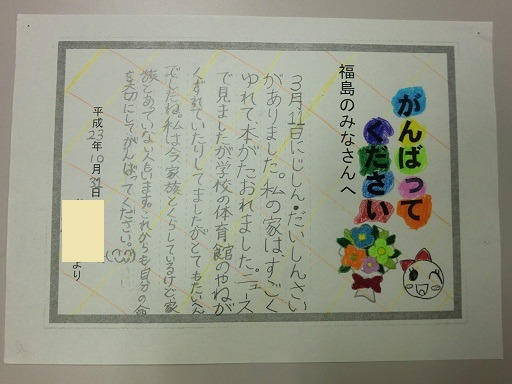 がんばって
ください
福島のみなさんへ
3月11日にじしん・だいしんさい
がありました。私の家は、すごく
ゆれて本がたおれました。ニュース
で見ましたが学校の体育館のやねが
くずれていたりしてましたがとてもたいへん
でしたね。私は今家族とくらしているけど家
族とあっていない人もいます。これからも自分の命
を大切にしてがんばってください。
平成23年10月31日
より